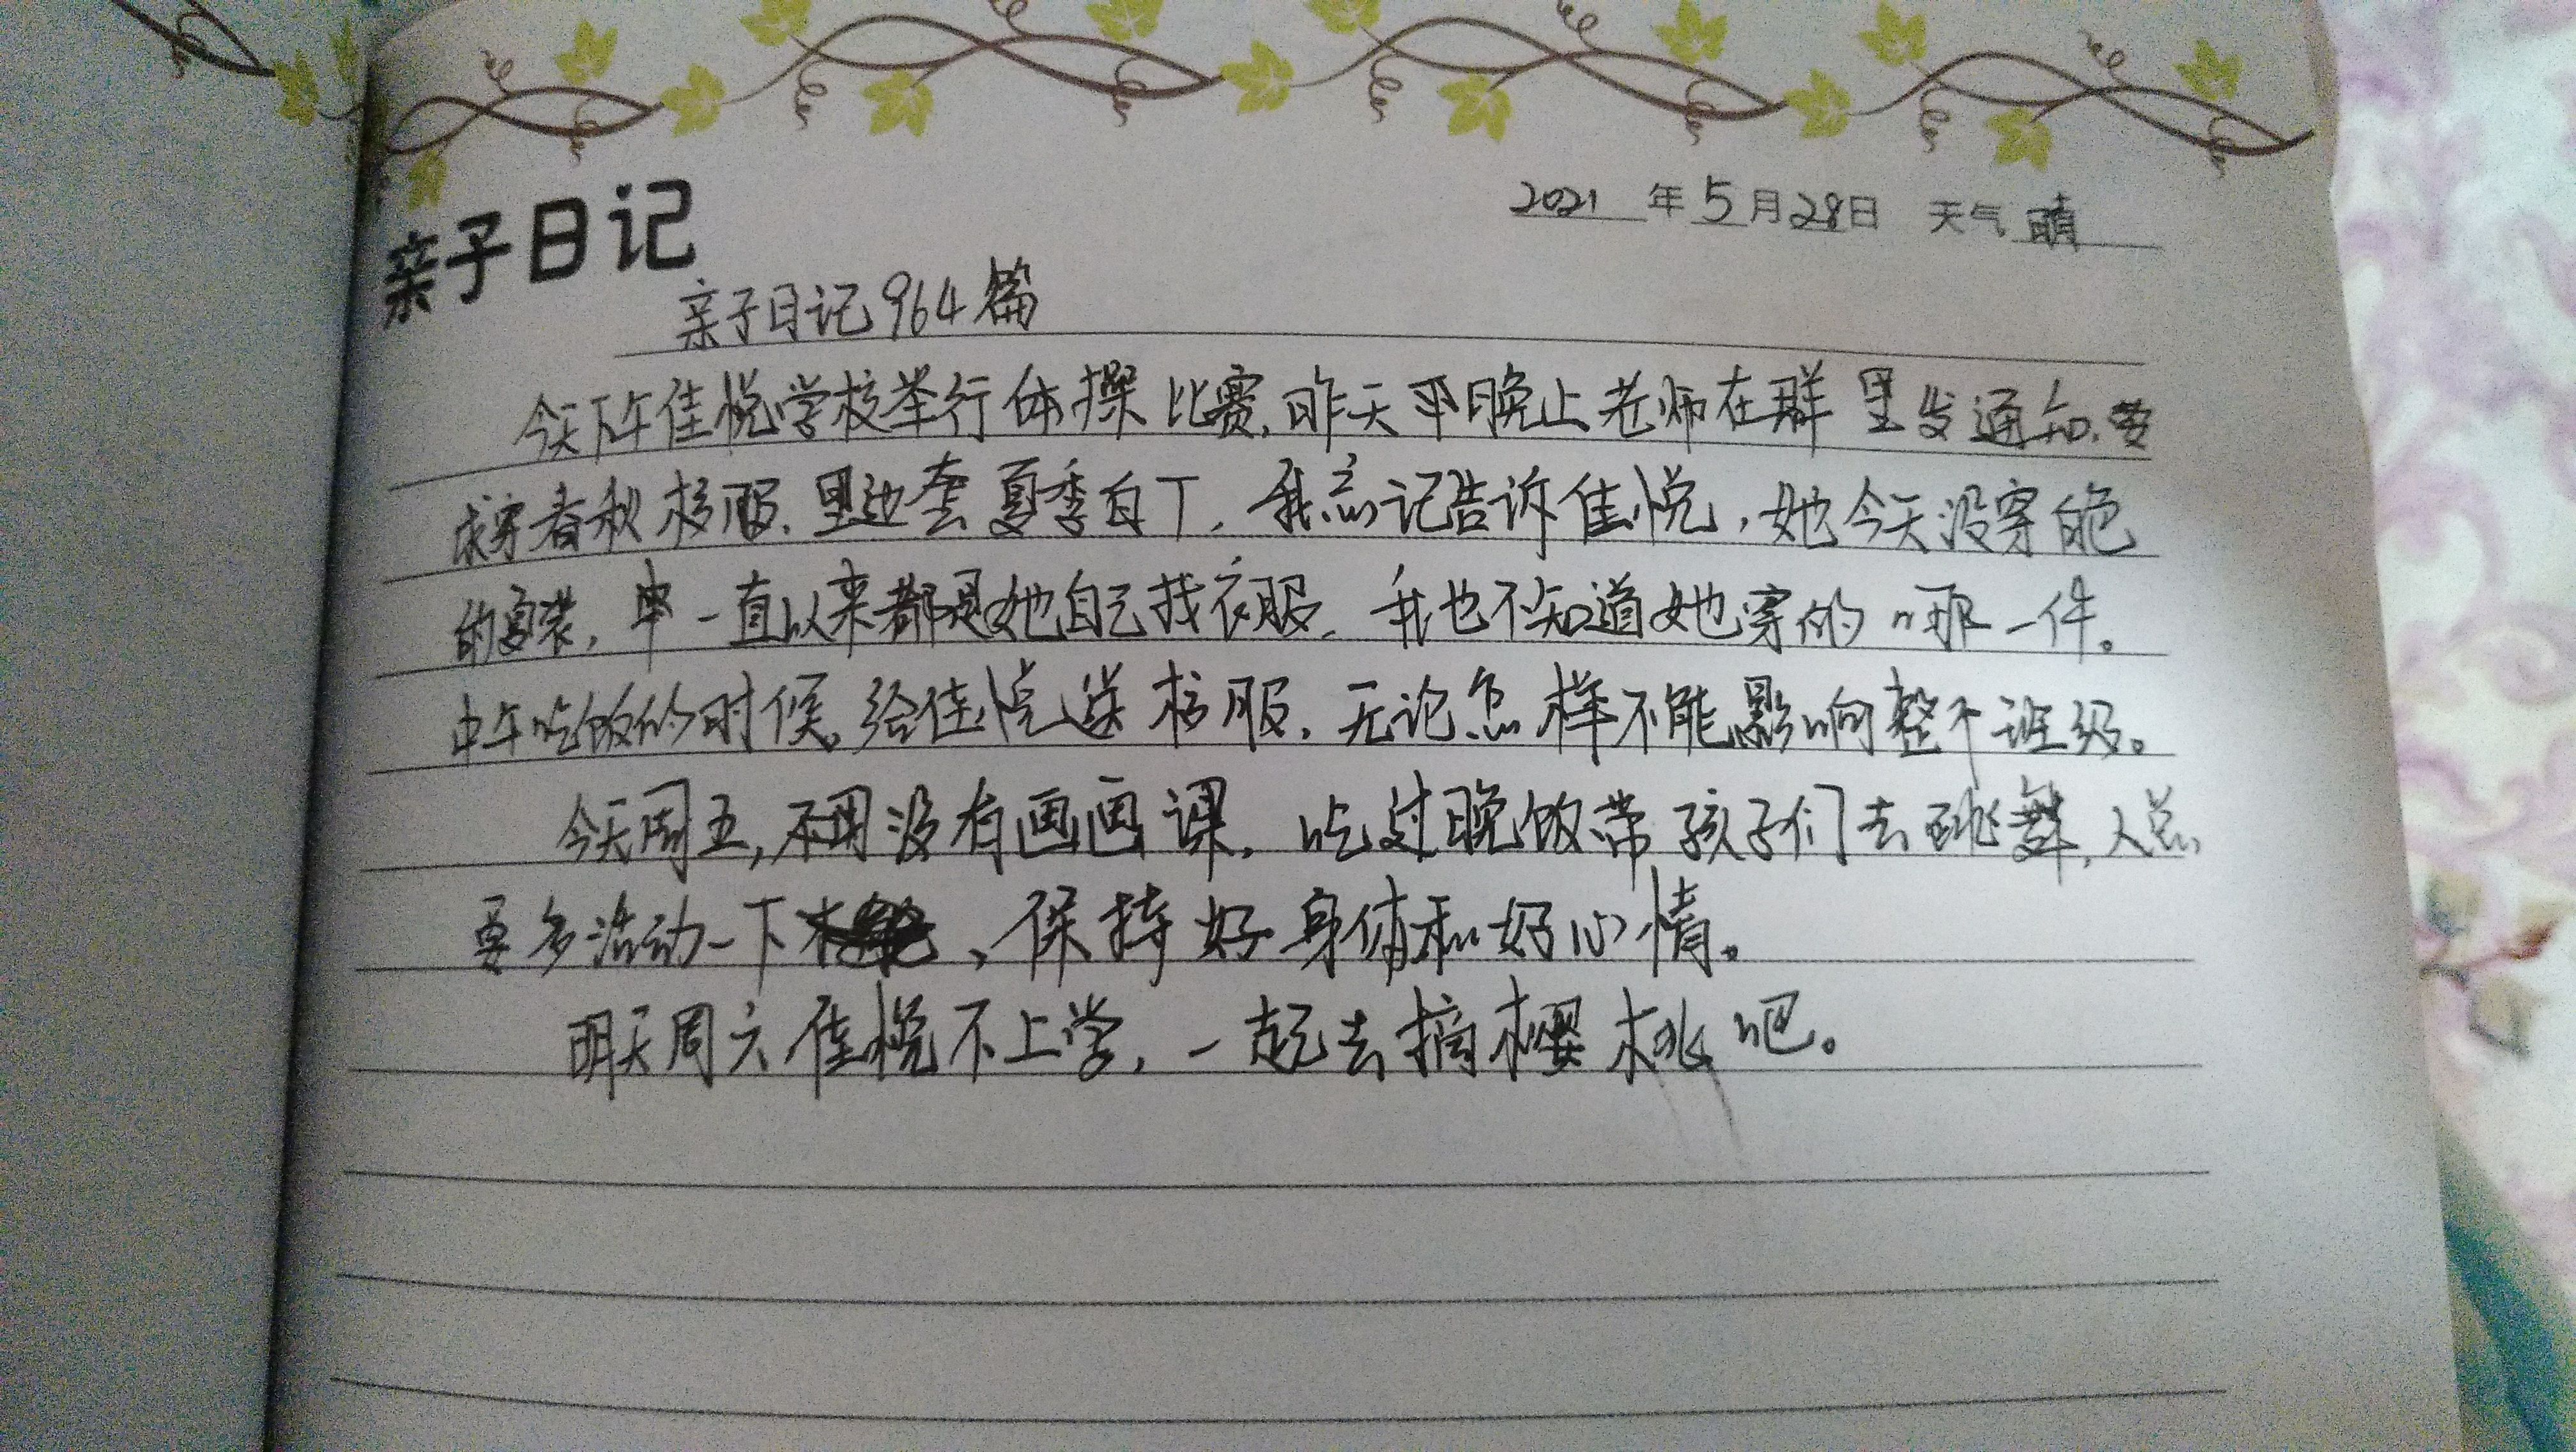 2021年5月28日 天气 晴
亲子日记
亲子日记964篇
今天下午佳悦学校举行体操比赛,昨天晚上老师在群里发通知,要
求穿春秋校服,里边套夏季白丁,我忘记告诉佳悦,她今天没穿白色
的夏装,一直以来都是她自己找衣服,我也不知道她穿的哪一件。
中午吃饭的时候,给佳悦送校服,无论怎样不能影响整个班级。
今天周五,不用没有画画课,吃过晚饭带孩子们去跳舞,人总
要多活动一下、保持好身体和好心情。
明天周六佳悦不上学,一起去摘樱桃吧。